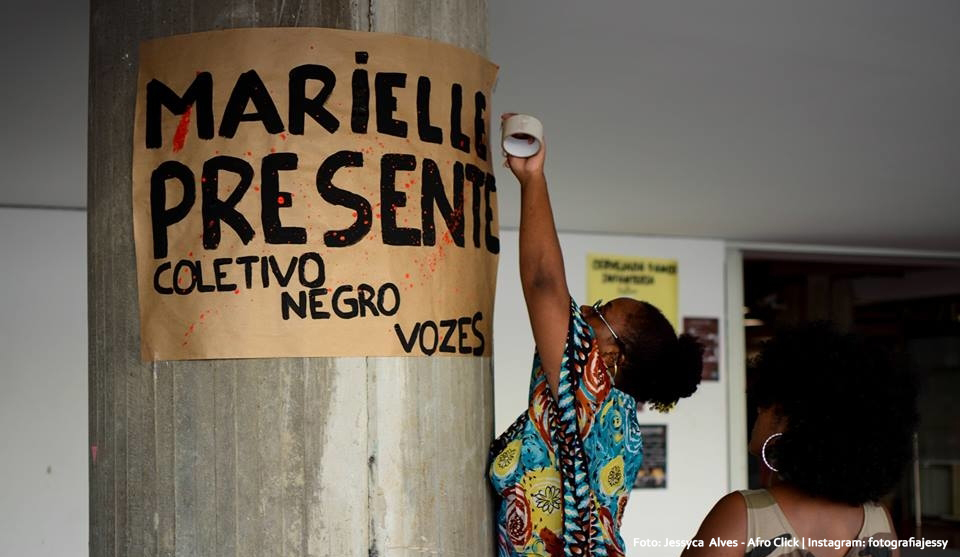 MARiELLE
PRESENTE
COLETIVO
NEGRO
VOZES
Foto: Jessyca Alves - Afro Click | Instagram: fotografiajessy